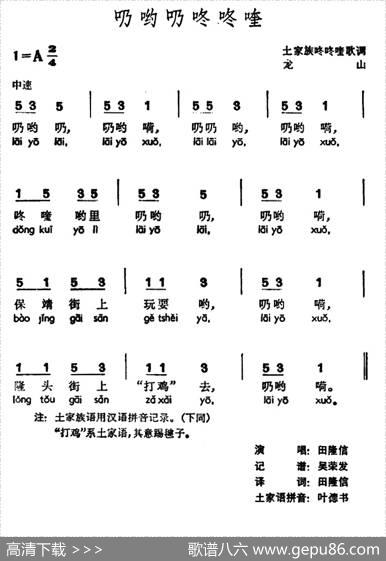 叨哟叨咚咚喹
1=A 2/4
土家族咚咚喹歌调
龙山
中速
5 3 5 | 5 3 1 | 5 5 3 | 5 3 1 |
叨哟叨, 叨哟嗬, 叨叨哟, 叨哟嗬,
lāi yō lāi, lāi yō xuǒ, lāi lāi yō, lāi yō xuǒ,
1 5 3 5 | 5 3 5 | 5 3 1 |
咚喹哟里 叨哟叨, 叨哟嗬,
dǒng kuī yō lǐ lāi yō lāi, lāi yō xuǒ,
5 1 5 3 | 1 1 3 | 5 3 1 |
保靖街上 玩耍哟, 叨哟嗬,
bào jǐng gāi sān gě tshěi yō, lāi yō xuǒ,
1 1 5 3 | 1 1 3 | 5 3 1
隆头街上 “打鸡”去, 叨哟嗬。
lóng tǒu gāi sān zǎ xāi yō, lāi yō xuǒ。
注: 土家族语用汉语拼音记录。(下同)
“打鸡”系土家语,其意踢毽子。
演 唱: 田隆信
记 谱: 吴荣发
译 词: 田隆信
土家语拼音: 叶德书
高清下载 >>>
歌谱八六 www.gepu86.com